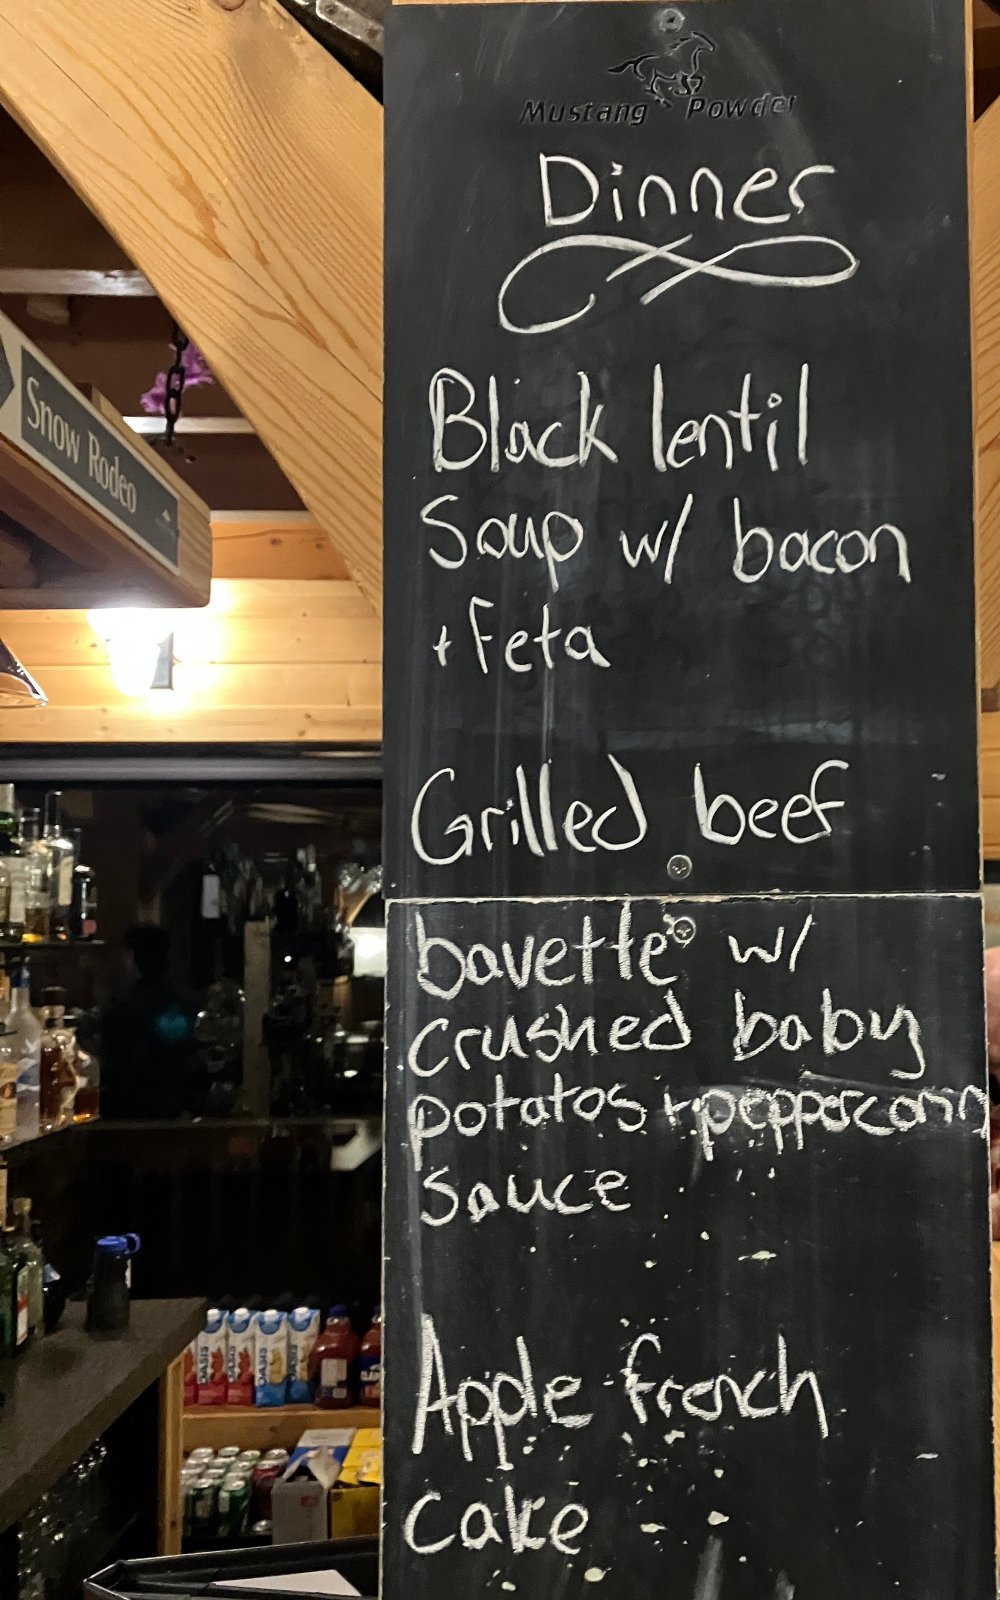 Mustang Powder
Dinner
Black lentil
Soup w/ bacon
+ feta
Grilled beef
bavette w/
crushed baby
potatos + peppercorn
sauce
Apple french
cake
Snow Rodeo
OASIS
OASIS
OASIS
OASIS